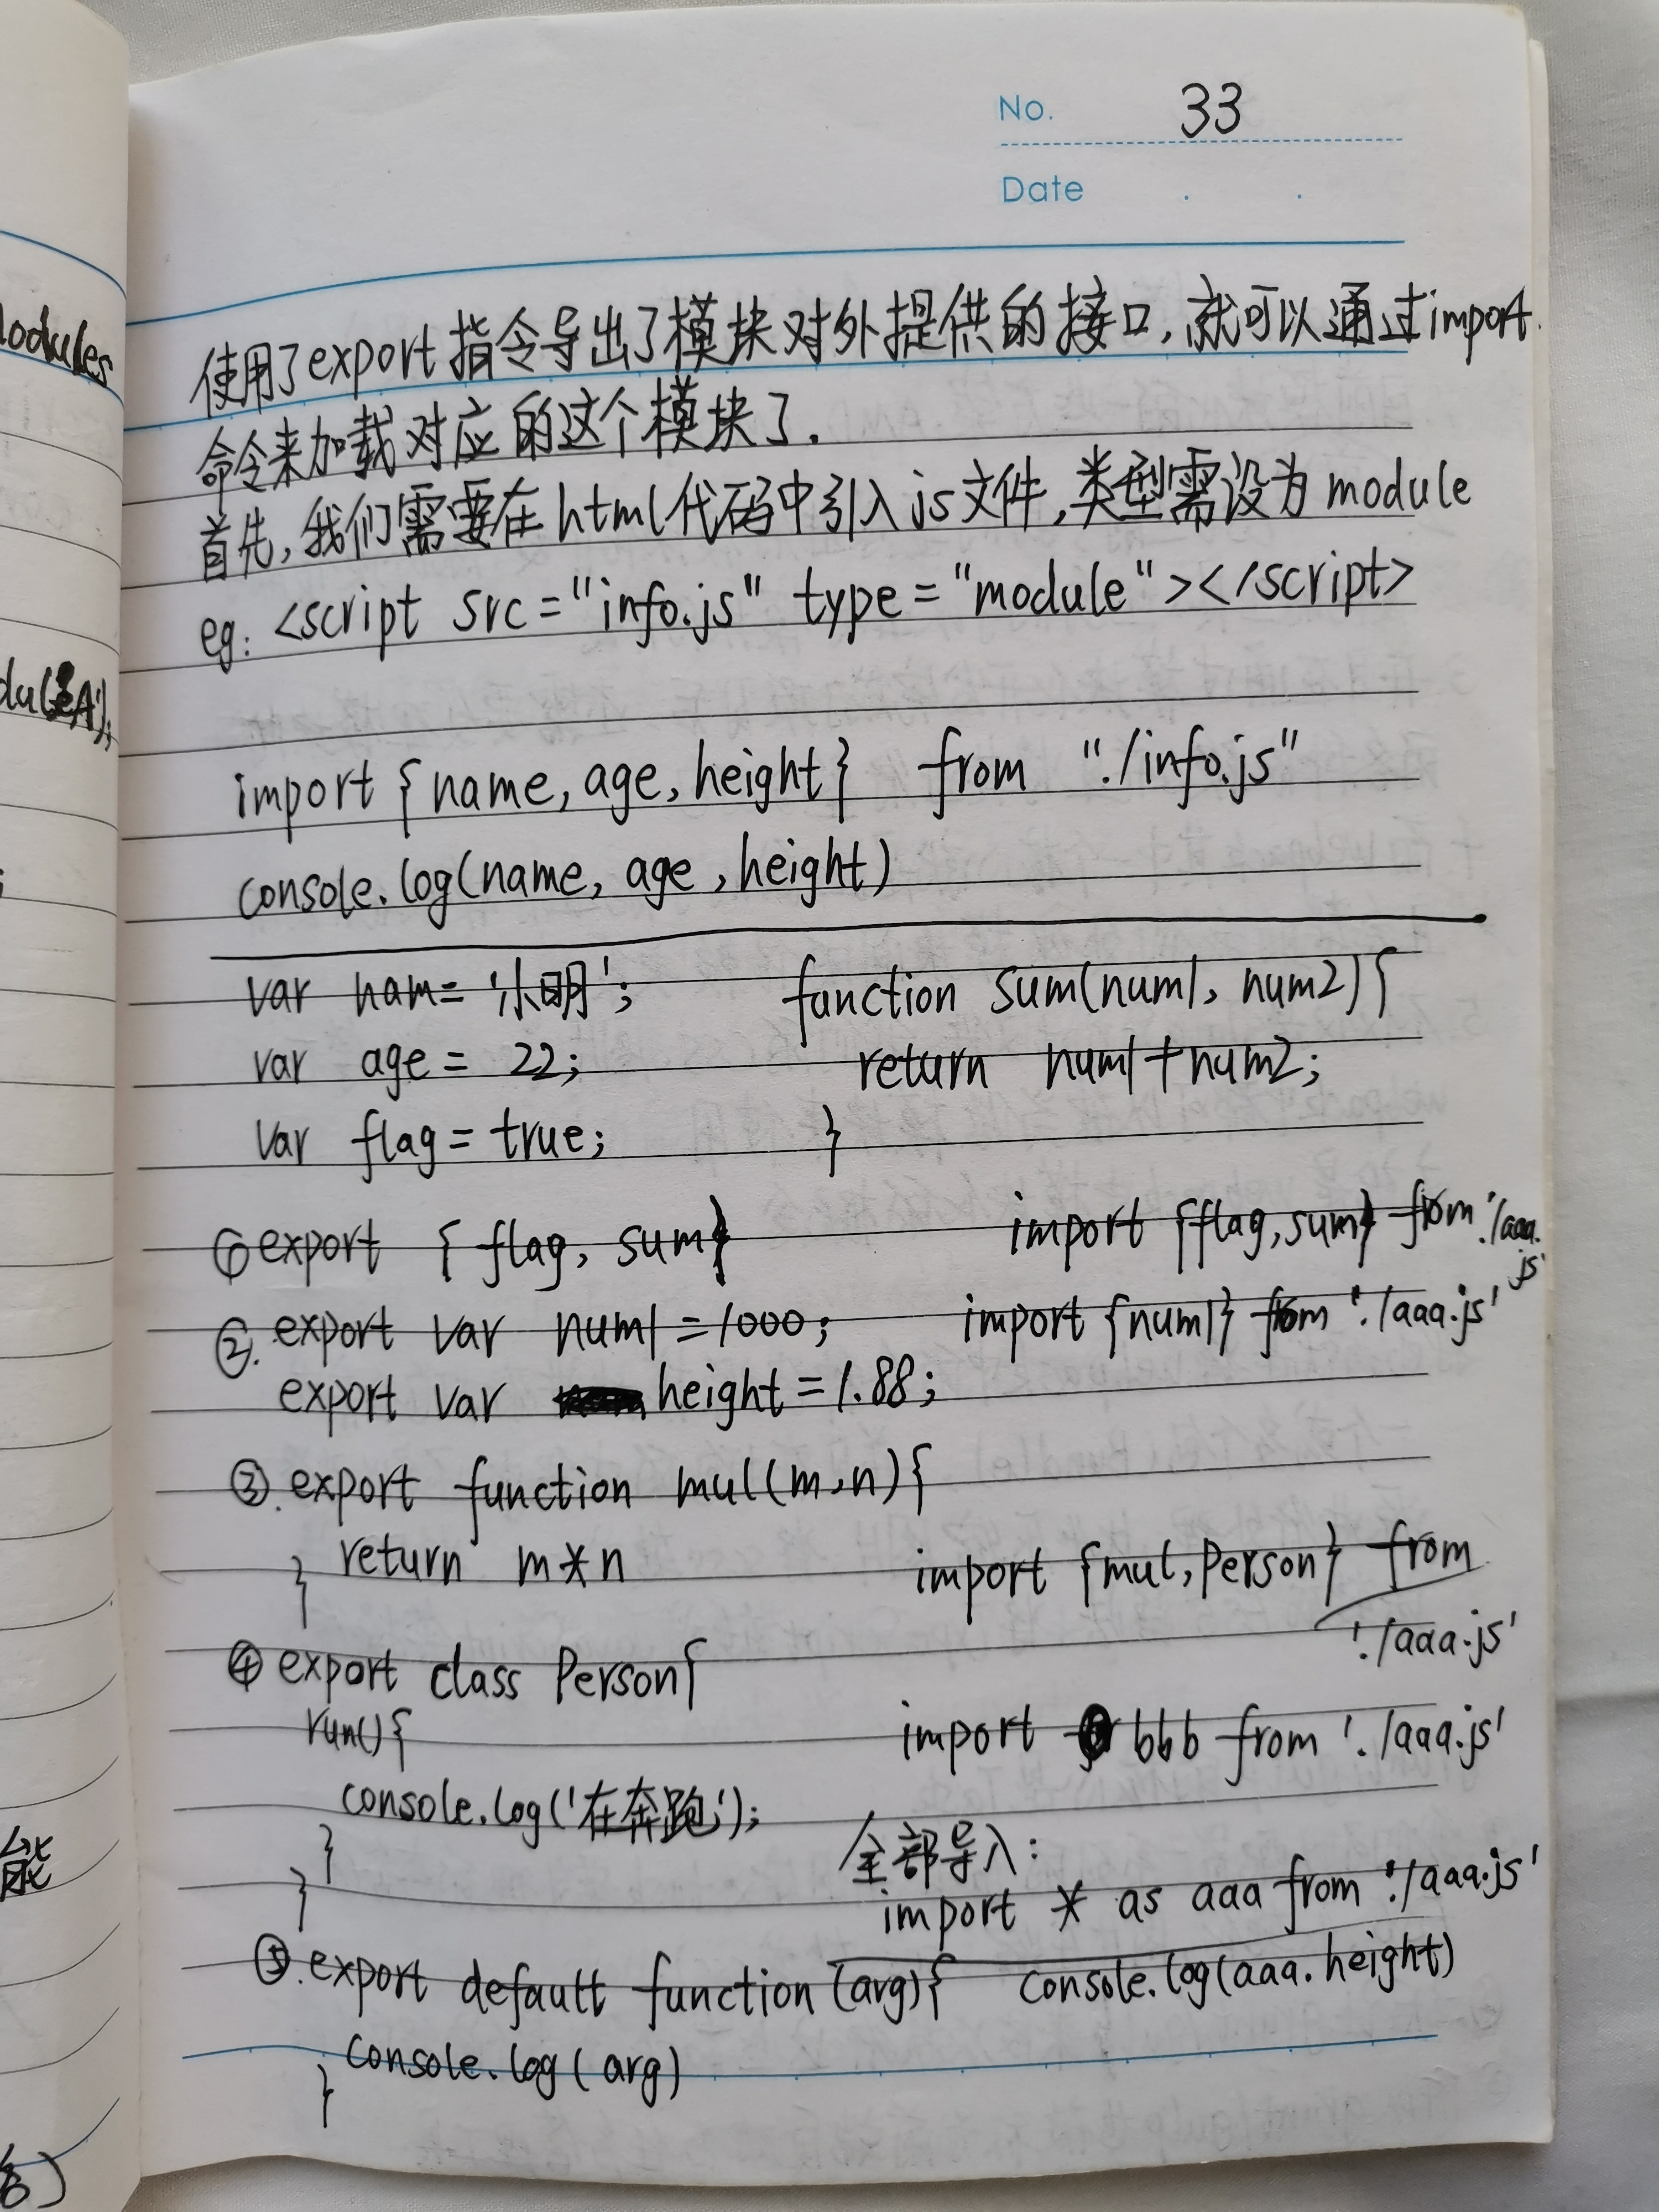 No. 33
Date
使用了export指令导出了模块对外提供的接口,就可以通过import
命令来加载对应的这个模块了.
首先,我们需要在html代码中引入js文件,类型需设为module
eg: <script src="info.js" type="module"></script>
import {name, age, height} from "./info.js"
console.log(name, age, height)
var nam= '小明';
var age = 22;
var flag = true;
function sum(num1, num2){
return num1+num2;
}
①export { flag, sum}
import {flag, sum} from './aaa.
js'
②. export var num1=1000;
import {num1} from './aaa.js'
export var height=1.88;
③. export function mul(m,n){
return m*n
}
import {mul, Person} from
'./aaa.js'
④ export class Person{
run(){
console.log('在奔跑');
}
}
import bbb from './aaa.js'
全部导入:
import * as aaa from './aaa.js'
console.log(aaa.height)
⑤. export default function (arg){
console.log(arg)
}
odules
能